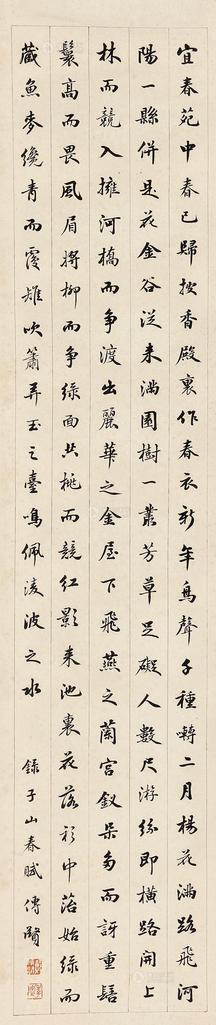 宜春苑中春已歸披香殿裏作春衣新年鳥聲千種囀二月楊花滿路飛河
陽一縣併是花金谷從來滿園樹一叢芳草足礙人數尺游絲即橫路開上
林而競入擁河橋而爭渡出麗華之金屋下飛燕之蘭宮釵朵多而訝重髻
鬟高而畏風眉將柳而爭綠面共桃而競紅影來池裏花落衫中苔始綠而
藏魚麥纔青而覆雉吹簫弄玉之臺鳴佩凌波之水
錄子山春賦 傅增